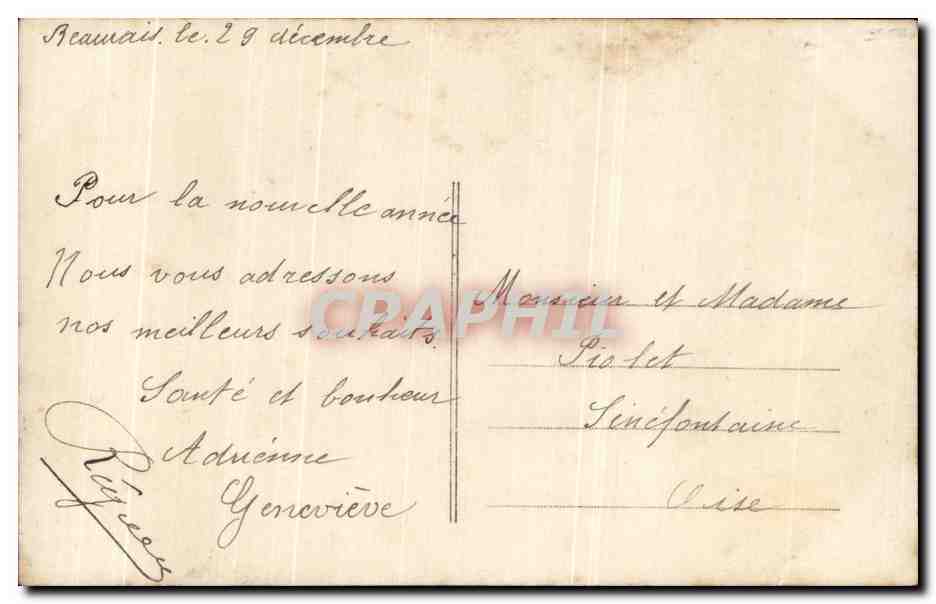 Beauvais. le. 29 décembre
Pour la nouvelle année
Nous vous adressons
nos meilleurs souhaits.
Santé et bonheur
Adriénne
Geneviève
Monsieur et Madame
Piolet
Sénéfontaine
Oise
CPAPHIL